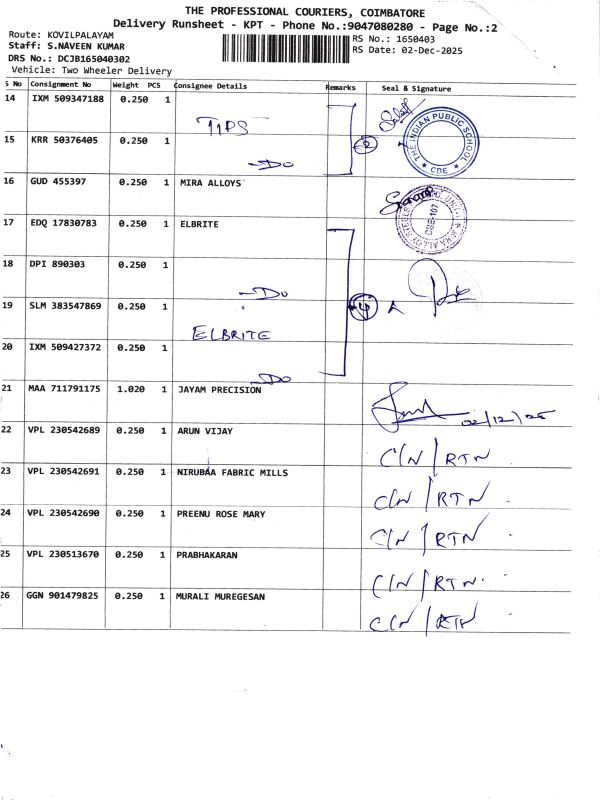 THE PROFESSIONAL COURIERS, COIMBATORE
Delivery Runsheet - KPT - Phone No.:9047080280 - Page No.:2
Route: KOVILPALAYAM
RS No.: 1650403
Staff: S.NAVEEN KUMAR
RS Date: 02-Dec-2025
DRS No.: DCJB165040302
Vehicle: Two Wheeler Delivery
S No Consignment No Weight PCS Consignee Details Remarks Seal & Signature
14 IXM 509347188 0.250 1
TIPS
THE INDIAN PUBLIC SCHOOL
★ CBE ★
15 KRR 50376405 0.250 1
Do
2
16 GUD 455397 0.250 1 MIRA ALLOYS
17 EDQ 17830783 0.250 1 ELBRITE
18 DPI 890303 0.250 1
Do
19 SLM 383547869 0.250 1
4
ELBRITE
20 IXM 509427372 0.250 1
Do
21 MAA 711791175 1.020 1 JAYAM PRECISION
02/12/25
22 VPL 230542689 0.250 1 ARUN VIJAY
C/N / RTN
23 VPL 230542691 0.250 1 NIRUBAA FABRIC MILLS
C/N / RTN
24 VPL 230542690 0.250 1 PREENU ROSE MARY
C/N / RTN
25 VPL 230513670 0.250 1 PRABHAKARAN
C/N / RTN
26 GGN 901479825 0.250 1 MURALI MUREGESAN
C/N / RTN